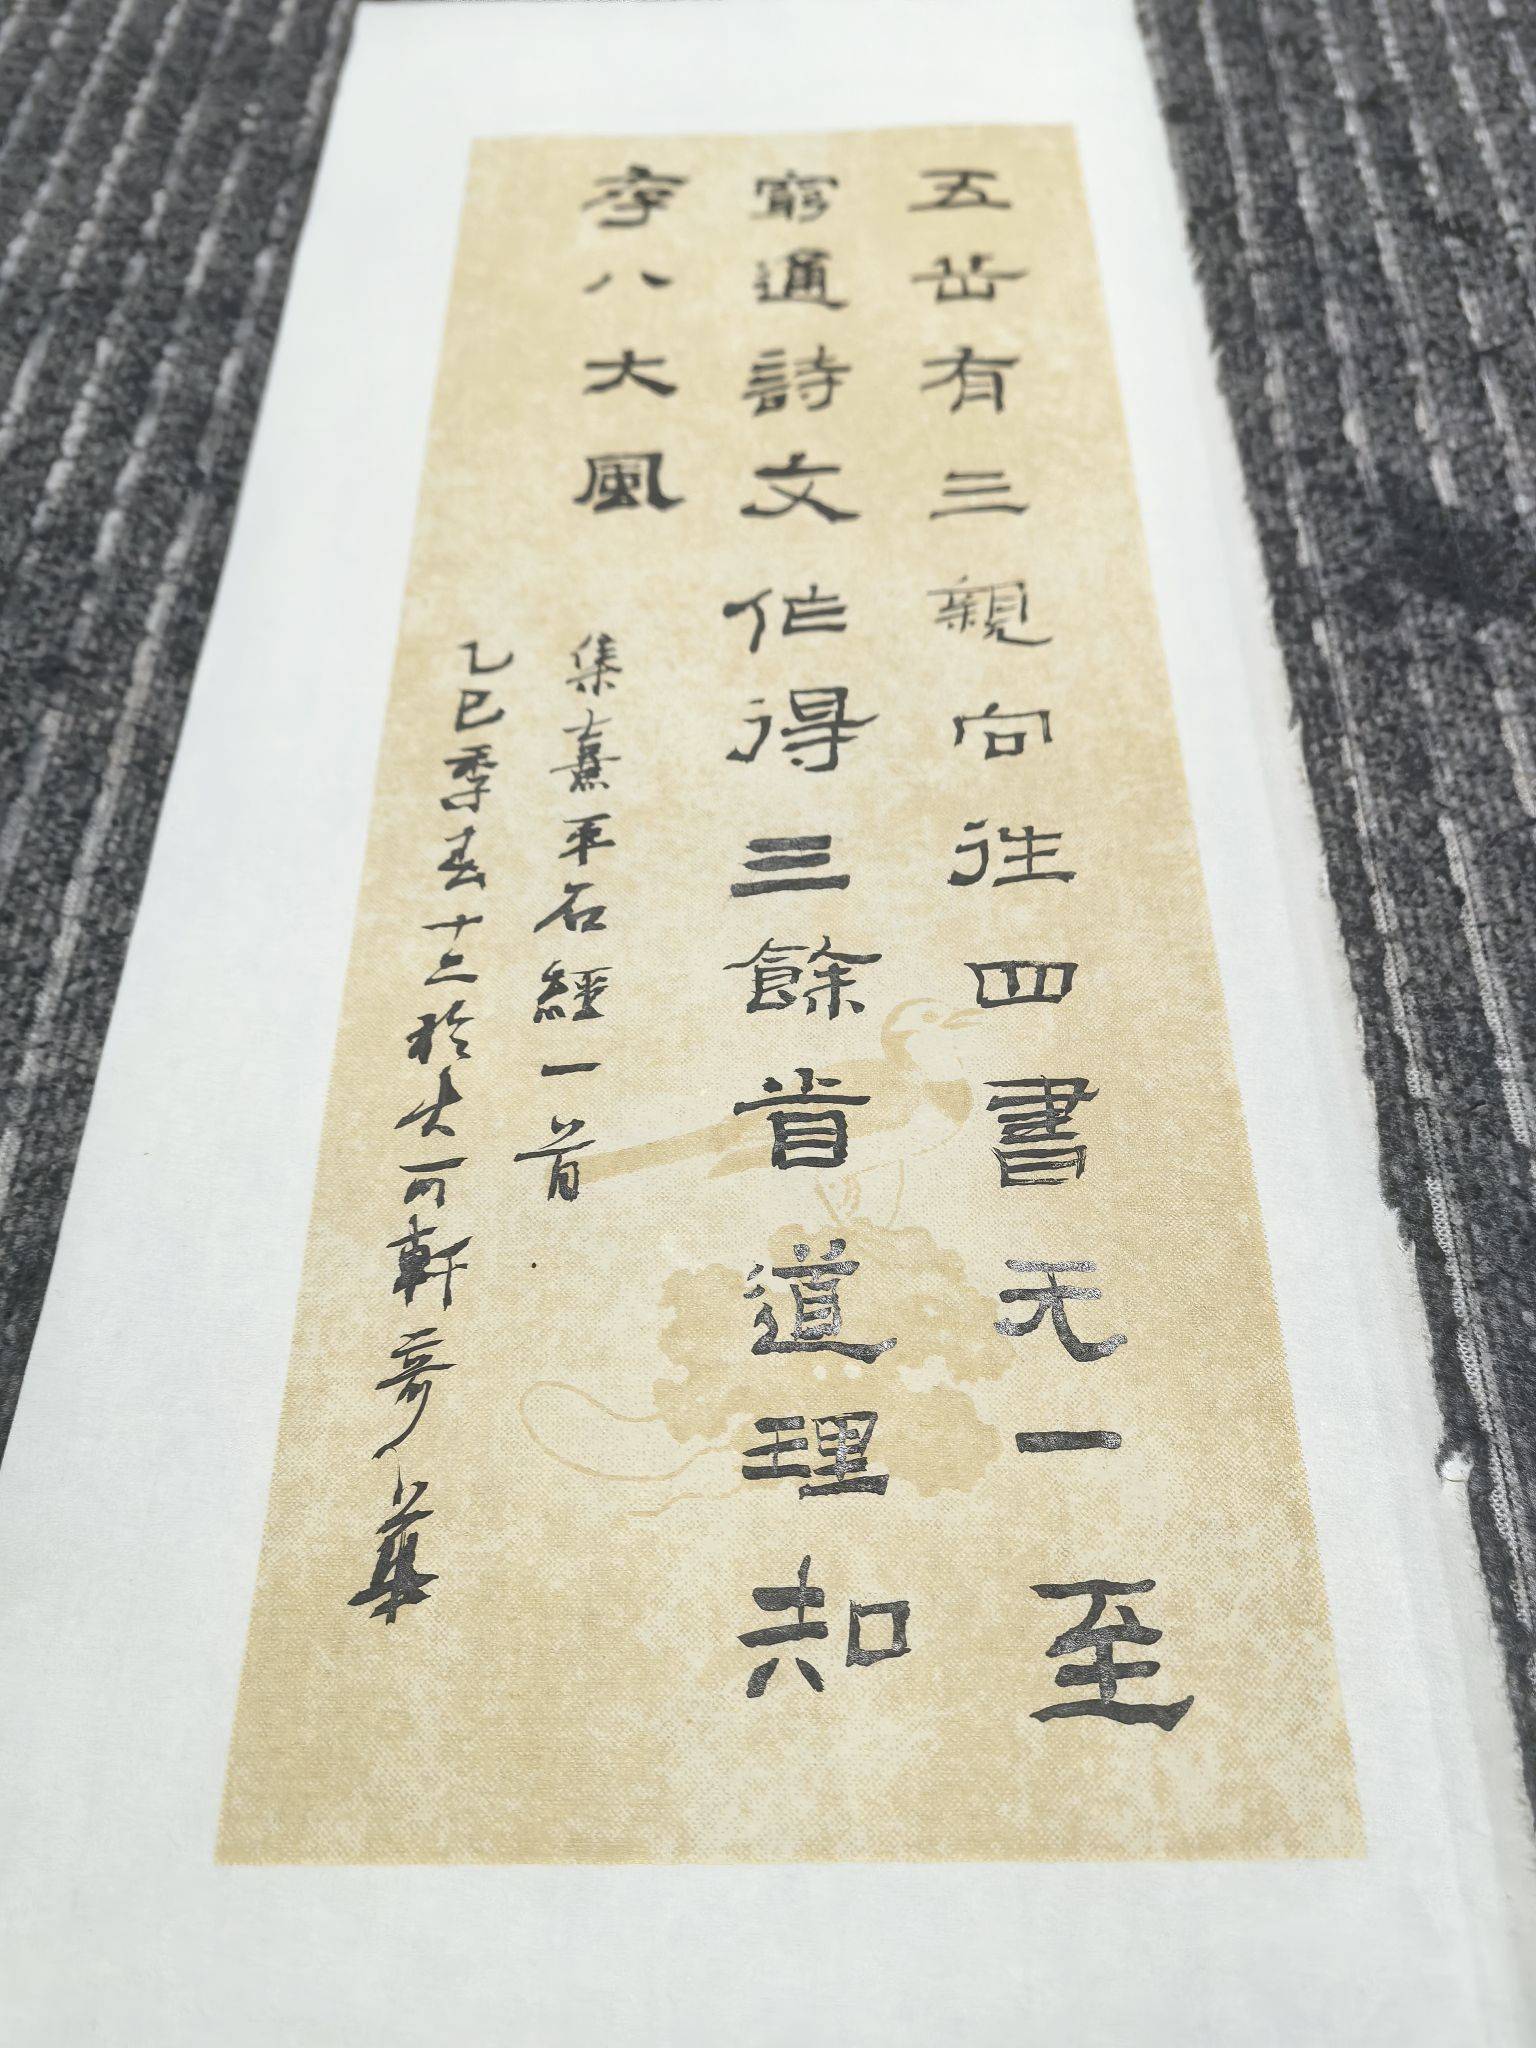 五岳有三親向往四書无一至
窮通詩文作得三餘首道理知
李八大風
集熹平石經一首
乙巳季春十二於大可軒奇華